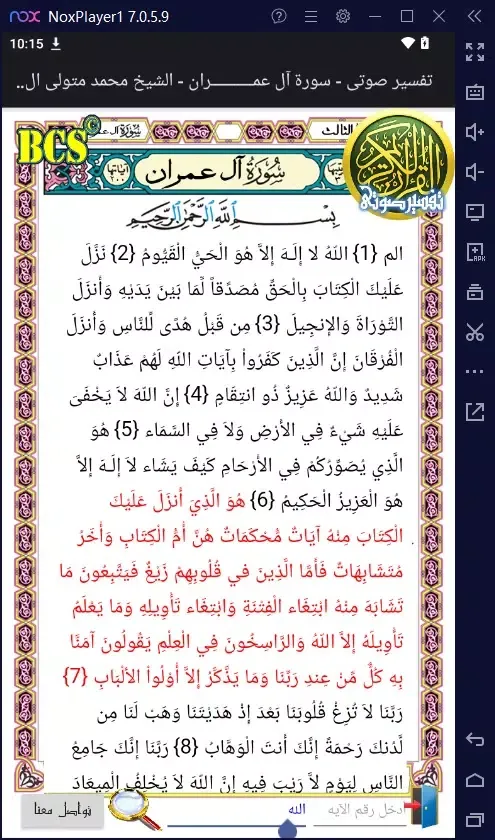 NoxPlayer1 7.0.5.9
10:15
تفسير صوتى - سورة آل عمـــــــــران - الشيخ محمد متولى ال..
BCS©
سورة آل عمران
الثالث
القرآن الكريم
تفسير صوتى
آياتها
٢٠٠
سُورَةُ آلِ عِمْرَانَ
بِسْمِ اللَّهِ الرَّحْمَنِ الرَّحِيمِ
الم {1} اللّهُ لا إِلَـهَ إِلاَّ هُوَ الْحَيُّ الْقَيُّومُ {2} نَزَّلَ
عَلَيْكَ الْكِتَابَ بِالْحَقِّ مُصَدِّقاً لِّمَا بَيْنَ يَدَيْهِ وَأَنزَلَ
التَّوْرَاةَ وَالإِنجِيلَ {3} مِن قَبْلُ هُدًى لِّلنَّاسِ وَأَنزَلَ
الْفُرْقَانَ إِنَّ الَّذِينَ كَفَرُواْ بِآيَاتِ اللّهِ لَهُمْ عَذَابٌ
شَدِيدٌ وَاللّهُ عَزِيزٌ ذُو انتِقَامٍ {4} إِنَّ اللّهَ لاَ يَخْفَىَ
عَلَيْهِ شَيْءٌ فِي الأَرْضِ وَلاَ فِي السَّمَاء {5} هُوَ
الَّذِي يُصَوِّرُكُمْ فِي الأَرْحَامِ كَيْفَ يَشَاء لاَ إِلَـهَ إِلاَّ
هُوَ الْعَزِيزُ الْحَكِيمُ {6} هُوَ الَّذِيَ أَنزَلَ عَلَيْكَ
الْكِتَابَ مِنْهُ آيَاتٌ مُّحْكَمَاتٌ هُنَّ أُمُّ الْكِتَابِ وَأُخَرُ
مُتَشَابِهَاتٌ فَأَمَّا الَّذِينَ في قُلُوبِهِمْ زَيْغٌ فَيَتَّبِعُونَ مَا
تَشَابَهَ مِنْهُ ابْتِغَاء الْفِتْنَةِ وَابْتِغَاء تَأْوِيلِهِ وَمَا يَعْلَمُ
تَأْوِيلَهُ إِلاَّ اللّهُ وَالرَّاسِخُونَ فِي الْعِلْمِ يَقُولُونَ آمَنَّا
بِهِ كُلٌّ مِّنْ عِندِ رَبِّنَا وَمَا يَذَّكَّرُ إِلاَّ أُوْلُواْ الألْبَابِ {7}
رَبَّنَا لاَ تُزِغْ قُلُوبَنَا بَعْدَ إِذْ هَدَيْتَنَا وَهَبْ لَنَا مِن
لَّدُنكَ رَحْمَةً إِنَّكَ أَنتَ الْوَهَّابُ {8} رَبَّنَا إِنَّكَ جَامِعُ
النَّاسِ لِيَوْمٍ لاَّ رَيْبَ فِيهِ إِنَّ اللّهَ لاَ يُخْلِفُ الْمِيعَادَ
ادخل رقم الآيه
الله
تواصل معنا